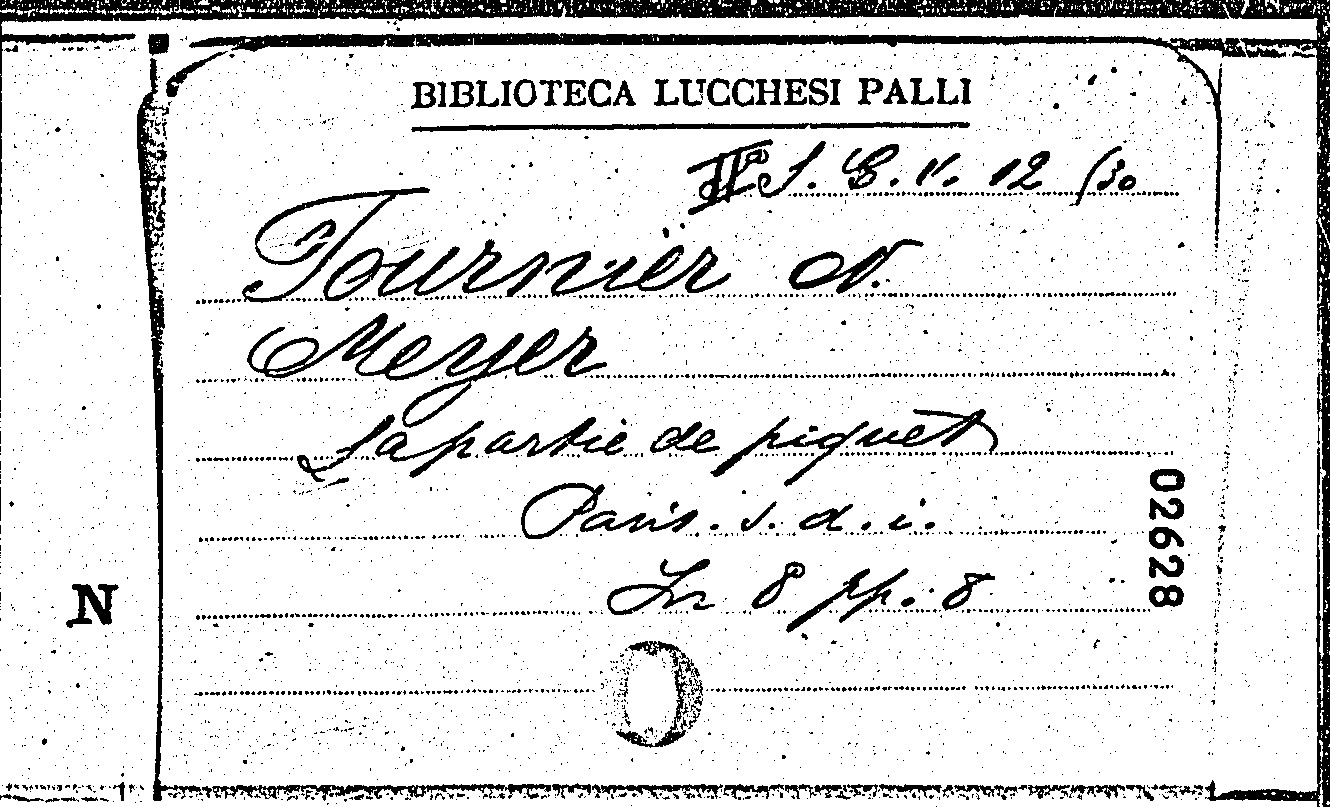 BIBLIOTECA LUCCHESI PALLI
S. G. V. 12 (30
Fournier N.
Meyer
La partie de piquet
Paris. s. d. i.
02628
In 8 pp. 8
N